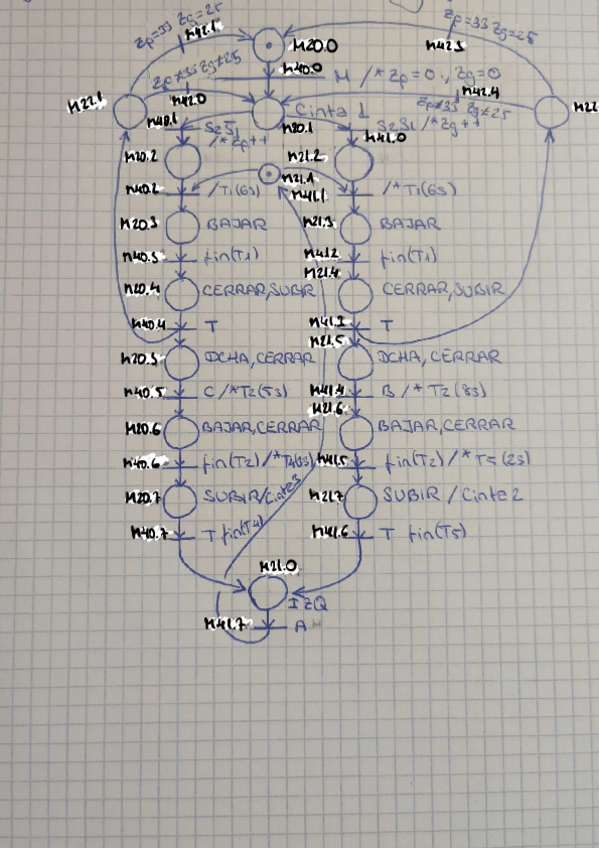 Zp=33 Zg=25
M42.1
M20.0
M42.3
Zp=33 Zg=25
M40.0
M /*Zp=0, Zg=0
Zp≠33 Zg≠25
M42.0
M42.4
Zp≠33 Zg≠25
M22.1
M22
Cinta 1
M40.1
M20.1
M41.0
/*Zp++
S2S1 /*Zg++
M20.2
M21.2
M21.1
M40.2
/T1(6s)
M41.1
/*T1(6s)
M20.3
BAJAR
M21.3
BAJAR
M40.3
fin(T1)
M41.2
fin(T1)
M21.4
M20.4
CERRAR,SUBIR
CERRAR,SUBIR
M40.4
T
M41.3
T
M21.5
M20.5
DCHA,CERRAR
DCHA,CERRAR
M40.5
C/*T2(5s)
M41.4
B/*T2(8s)
M21.6
M20.6
BAJAR,CERRAR
BAJAR,CERRAR
M40.6
fin(T2)/*T4(3s)
M41.5
fin(T2)/*T5(2s)
M20.7
SUBIR/Cinta3
M21.7
SUBIR/Cinta2
M40.7
T fin(T4)
M41.6
T fin(T5)
M21.0
IZQ
M41.7
A